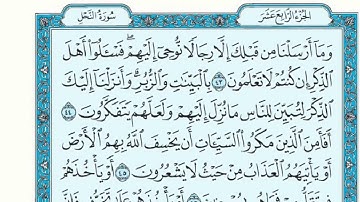 الجزء الرابع عشر
سورة النحل
وَمَآ أَرْسَلْنَا مِن قَبْلِكَ إِلَّا رِجَالًا نُّوحِىٓ إِلَيْهِمْ ۖ فَسْـَٔلُوٓا۟ أَهْلَ
ٱلذِّكْرِ إِن كُنتُمْ لَا تَعْلَمُونَ ٤٣ بِٱلْبَيِّنَـٰتِ وَٱلزُّبُرِ ۗ وَأَنزَلْنَآ إِلَيْكَ
ٱلذِّكْرَ لِتُبَيِّنَ لِلنَّاسِ مَا نُزِّلَ إِلَيْهِمْ وَلَعَلَّهُمْ يَتَفَكَّرُونَ ٤٤
أَفَأَمِنَ ٱلَّذِينَ مَكَرُوا۟ ٱلسَّيِّـَٔاتِ أَن يَخْسِفَ ٱللَّهُ بِهِمُ ٱلْأَرْضَ
أَوْ يَأْتِيَهُمُ ٱلْعَذَابُ مِنْ حَيْثُ لَا يَشْعُرُونَ ٤٥ أَوْ يَأْخُذَهُمْ